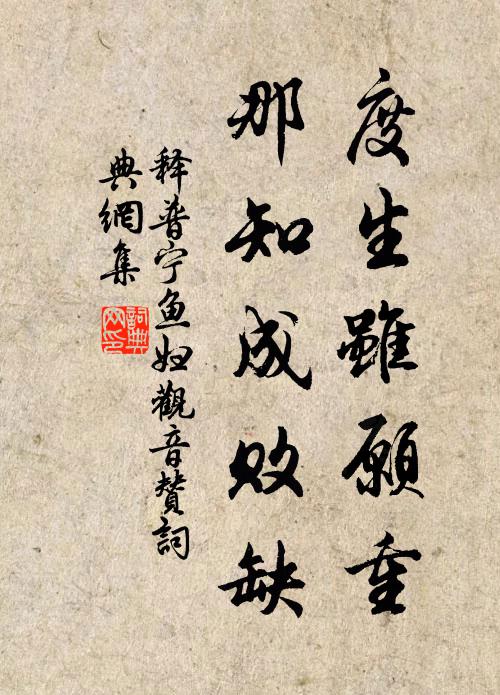 度生雖願重
那知成败缺
释普宁鱼妇觀音贊詞
典網集
詞典
网印